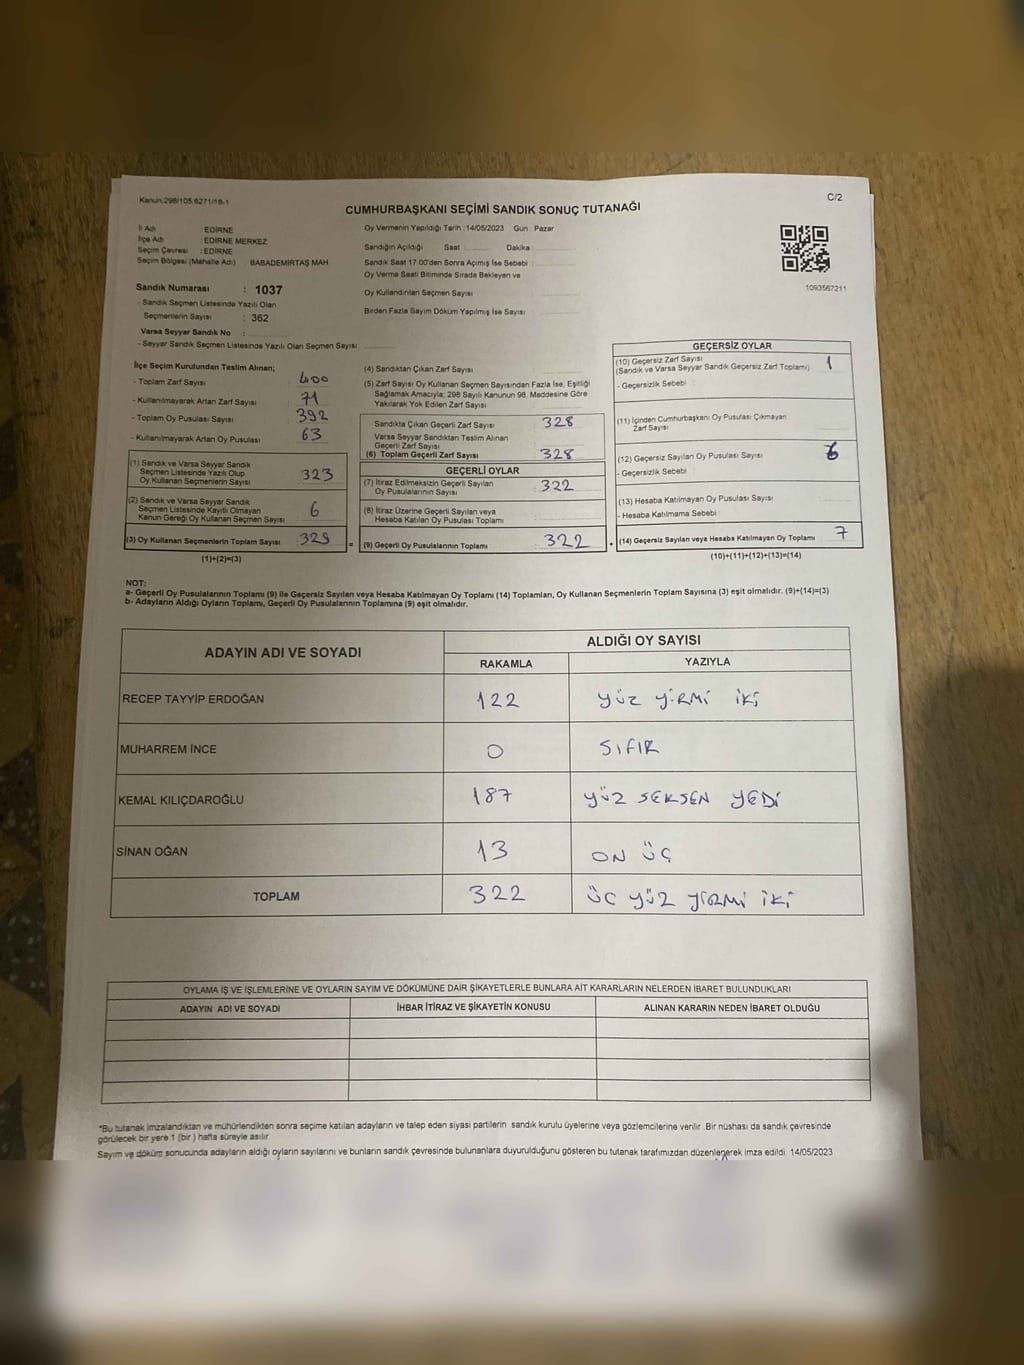 Kanun.298/105.6271/18-1
C/2
CUMHURBAŞKANI SEÇİMİ SANDIK SONUÇ TUTANAĞI
İl Adı : EDİRNE
İlçe Adı : EDİRNE MERKEZ
Seçim Çevresi : EDİRNE
Seçim Bölgesi (Mahalle Adı) : BABADEMİRTAŞ MAH.
Sandık Numarası : 1037
- Sandık Seçmen Listesinde Yazılı Olan
Seçmenlerin Sayısı : 362
Varsa Seyyar Sandık No :
- Seyyar Sandık Seçmen Listesinde Yazılı Olan Seçmen Sayısı:
Oy Vermenin Yapıldığı Tarih :14/05/2023 Gün : Pazar
Sandığın Açıldığı Saat Dakika
Sandık Saat 17:00'den Sonra Açımış İse Sebebi
Oy Verme Saati Bitiminde Sırada Bekleyen ve
Oy Kullandırılan Seçmen Sayısı
Birden Fazla Sayım Döküm Yapılmış İse Sayısı
1093567211
İlçe Seçim Kurulundan Teslim Alınan;
- Toplam Zarf Sayısı 400
- Kullanılmayarak Artan Zarf Sayısı 71
- Toplam Oy Pusulası Sayısı 392
- Kullanılmayarak Artan Oy Pusulası 63
(1) Sandık ve Varsa Seyyar Sandık
Seçmen Listesinde Yazılı Olup
Oy Kullanan Seçmenlerin Sayısı 323
(2) Sandık ve Varsa Seyyar Sandık
Seçmen Listesinde Kayıtlı Olmayan
Kanun Gereği Oy Kullanan Seçmen Sayısı 6
(3) Oy Kullanan Seçmenlerin Toplam Sayısı 329
(1)+(2)=(3)
(4) Sandıktan Çıkan Zarf Sayısı
(5) Zarf Sayısı Oy Kullanan Seçmen Sayısından Fazla İse, Eşitliği
Sağlamak Amacıyla; 298 Sayılı Kanunun 98. Maddesine Göre
Yakılarak Yok Edilen Zarf Sayısı
Sandıkta Çıkan Geçerli Zarf Sayısı 328
Varsa Seyyar Sandıktan Teslim Alınan
Geçerli Zarf Sayısı
(6) Toplam Geçerli Zarf Sayısı 328
GEÇERLİ OYLAR
(7) İtiraz Edilmeksizin Geçerli Sayılan
Oy Pusulalarının Sayısı 322
(8) İtiraz Üzerine Geçerli Sayılan veya
Hesaba Katılan Oy Pusulası Toplamı
= (9) Geçerli Oy Pusulalarının Toplamı 322 +
GEÇERSİZ OYLAR
(10) Geçersiz Zarf Sayısı
(Sandık ve Varsa Seyyar Sandık Geçersiz Zarf Toplamı) 1
- Geçersizlik Sebebi :
(11) İçinden Cumhurbaşkanı Oy Pusulası Çıkmayan
Zarf Sayısı
(12) Geçersiz Sayılan Oy Pusulası Sayısı 6
- Geçersizlik Sebebi :
(13) Hesaba Katılmayan Oy Pusulası Sayısı
- Hesaba Katılmama Sebebi :
(14) Geçersiz Sayılan veya Hesaba Katılmayan Oy Toplamı 7
(10)+(11)+(12)+(13)=(14)
NOT:
a- Geçerli Oy Pusulalarının Toplamı (9) ile Geçersiz Sayılan veya Hesaba Katılmayan Oy Toplamı (14) Toplamları, Oy Kullanan Seçmenlerin Toplam Sayısına (3) eşit olmalıdır. (9)+(14)=(3)
b- Adayların Aldığı Oyların Toplamı, Geçerli Oy Pusulalarının Toplamına (9) eşit olmalıdır.
ADAYIN ADI VE SOYADI
ALDIĞI OY SAYISI
RAKAMLA YAZIYLA
RECEP TAYYİP ERDOĞAN 122 YÜZ YİRMİ İKİ
MUHARREM İNCE 0 SIFIR
KEMAL KILIÇDAROĞLU 187 YÜZ SEKSEN YEDİ
SİNAN OĞAN 13 ON ÜÇ
TOPLAM 322 ÜÇ YÜZ YİRMİ İKİ
OYLAMA İŞ VE İŞLEMLERİNE VE OYLARIN SAYIM VE DÖKÜMÜNE DAİR ŞİKAYETLERLE BUNLARA AİT KARARLARIN NELERDEN İBARET BULUNDUKLARI
ADAYIN ADI VE SOYADI İHBAR İTİRAZ VE ŞİKAYETİN KONUSU ALINAN KARARIN NEDEN İBARET OLDUĞU
*Bu tutanak imzalandıktan ve mühürlendikten sonra seçime katılan adayların ve talep eden siyasi partilerin sandık kurulu üyelerine veya gözlemcilerine verilir. Bir nüshası da sandık çevresinde
görülecek bir yere 1 (bir) hafta süreyle asılır
Sayım ve döküm sonucunda adayların aldığı oyların sayılarını ve bunların sandık çevresinde bulunanlara duyurulduğunu gösteren bu tutanak tarafımızdan düzenlenerek imza edildi. 14/05/2023